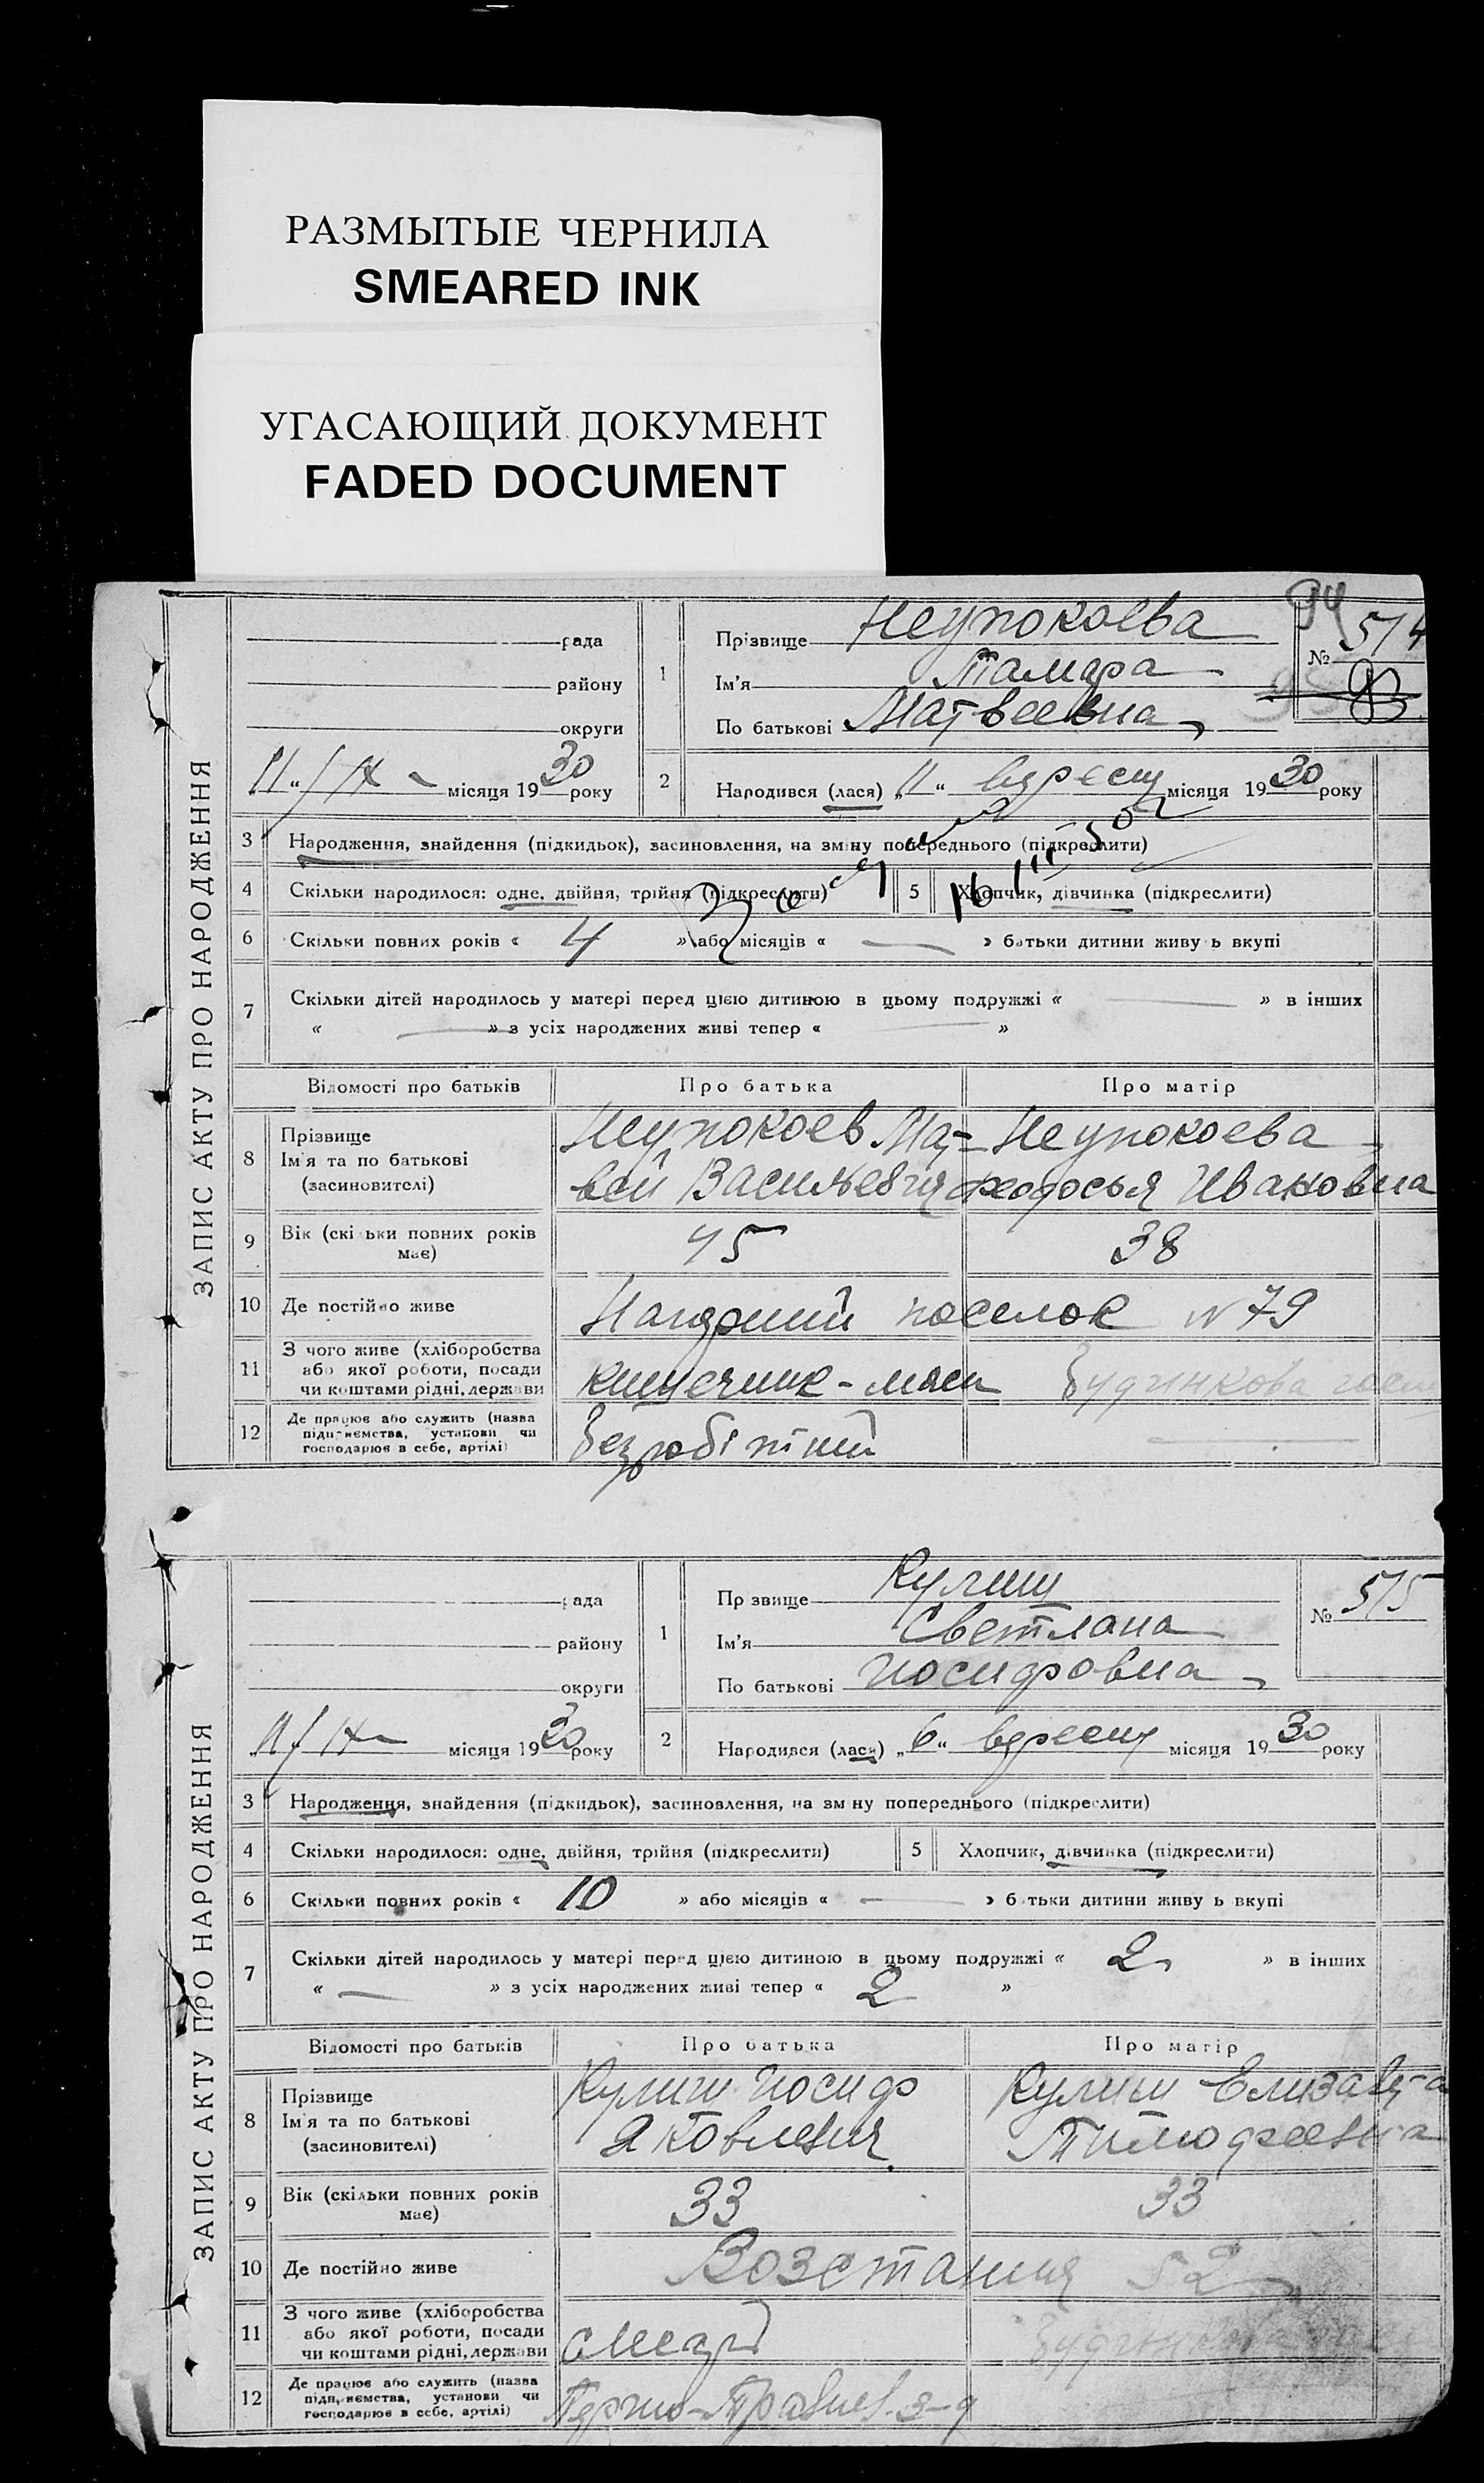 РАЗМЫТЫЕ ЧЕРНИЛА
SMEARED INK
УГАСАЮЩИЙ ДОКУМЕНТ
FADED DOCUMENT
ЗАПИС АКТУ ПРО НАРОДЖЕННЯ
94
рада
району
округи
1
Прізвище Неупокоева
Ім'я Тамара
По батькові Матвеевна
№ 514
93
„11“ IX місяця 1930 року
2
Народився (лася) „11“ вересня місяця 1930 року
3 Народження, знайдення (підкидьок), засиновлення, на зміну попереднього (підкреслити)
4 Скільки народилося: одне, двійня, трійня (підкреслити)
5 Хлопчик, дівчинка (підкреслити)
6 Скільки повних років « 4 » або місяців « — » батьки дитини живу ь вкупі
7 Скільки дітей народилось у матері перед цією дитиною в цьому подружжі « — » в інших
« — » з усіх народжених живі тепер « — »
Відомості про батьків Про батька Про матір
8 Прізвище
Ім'я та по батькові
(засиновителі)
Неупокоев Мат-
вей Васильевич
Неупокоева
Феодосья Ивановна
9 Вік (скільки повних років
має)
45 38
10 Де постійно живе
поселок №79
11 З чого живе (хліборобства
або якої роботи, посади
чи коштами рідні, держави
12 Де працює або служить (назва
підприємства, установи чи
господарює в себе, артілі)
безробітний —
ЗАПИС АКТУ ПРО НАРОДЖЕННЯ
рада
району
округи
1
Прізвище Кулиш
Ім'я Светлана
По батькові Иосифовна
№ 515
„11“ IX місяця 1930 року
2
Народився (лася) „6“ вересня місяця 1930 року
3 Народження, знайдення (підкидьок), засиновлення, на зміну попереднього (підкреслити)
4 Скільки народилося: одне, двійня, трійня (підкреслити)
5 Хлопчик, дівчинка (підкреслити)
6 Скільки повних років « 10 » або місяців « — » батьки дитини живу ь вкупі
7 Скільки дітей народилось у матері перед цією дитиною в цьому подружжі « 2 » в інших
« — » з усіх народжених живі тепер « 2 »
Відомості про батьків Про батька Про матір
8 Прізвище
Ім'я та по батькові
(засиновителі)
Кулиш Иосиф
Яковлевич
Кулиш Елизавета
Тимофеевна
9 Вік (скільки повних років
має)
33 33
10 Де постійно живе
Возстания 52
11 З чого живе (хліборобства
або якої роботи, посади
чи коштами рідні, держави
12 Де працює або служить (назва
підприємства, установи чи
господарює в себе, артілі)